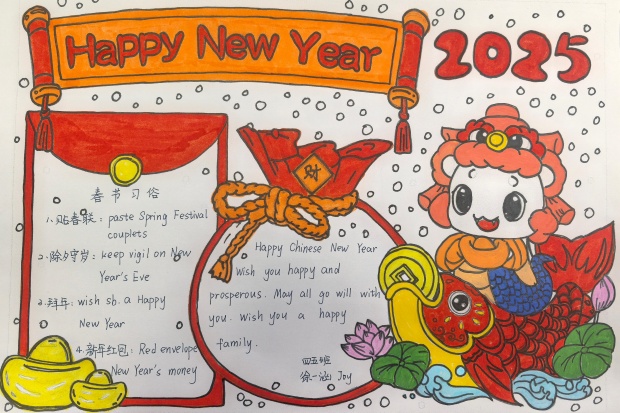 Happy New Year
2025
春节习俗
1、贴春联: paste Spring Festival
couplets
2、除夕守岁: keep vigil on New
Year's Eve
3、拜年: wish sb. a Happy
New Year
4、新年红包: Red envelope
New Year's money
财
Happy Chinese New Year
Wish you happy and
prosperous. May all go will with
you. wish you a happy
family.
四五班
徐一涵 Joy